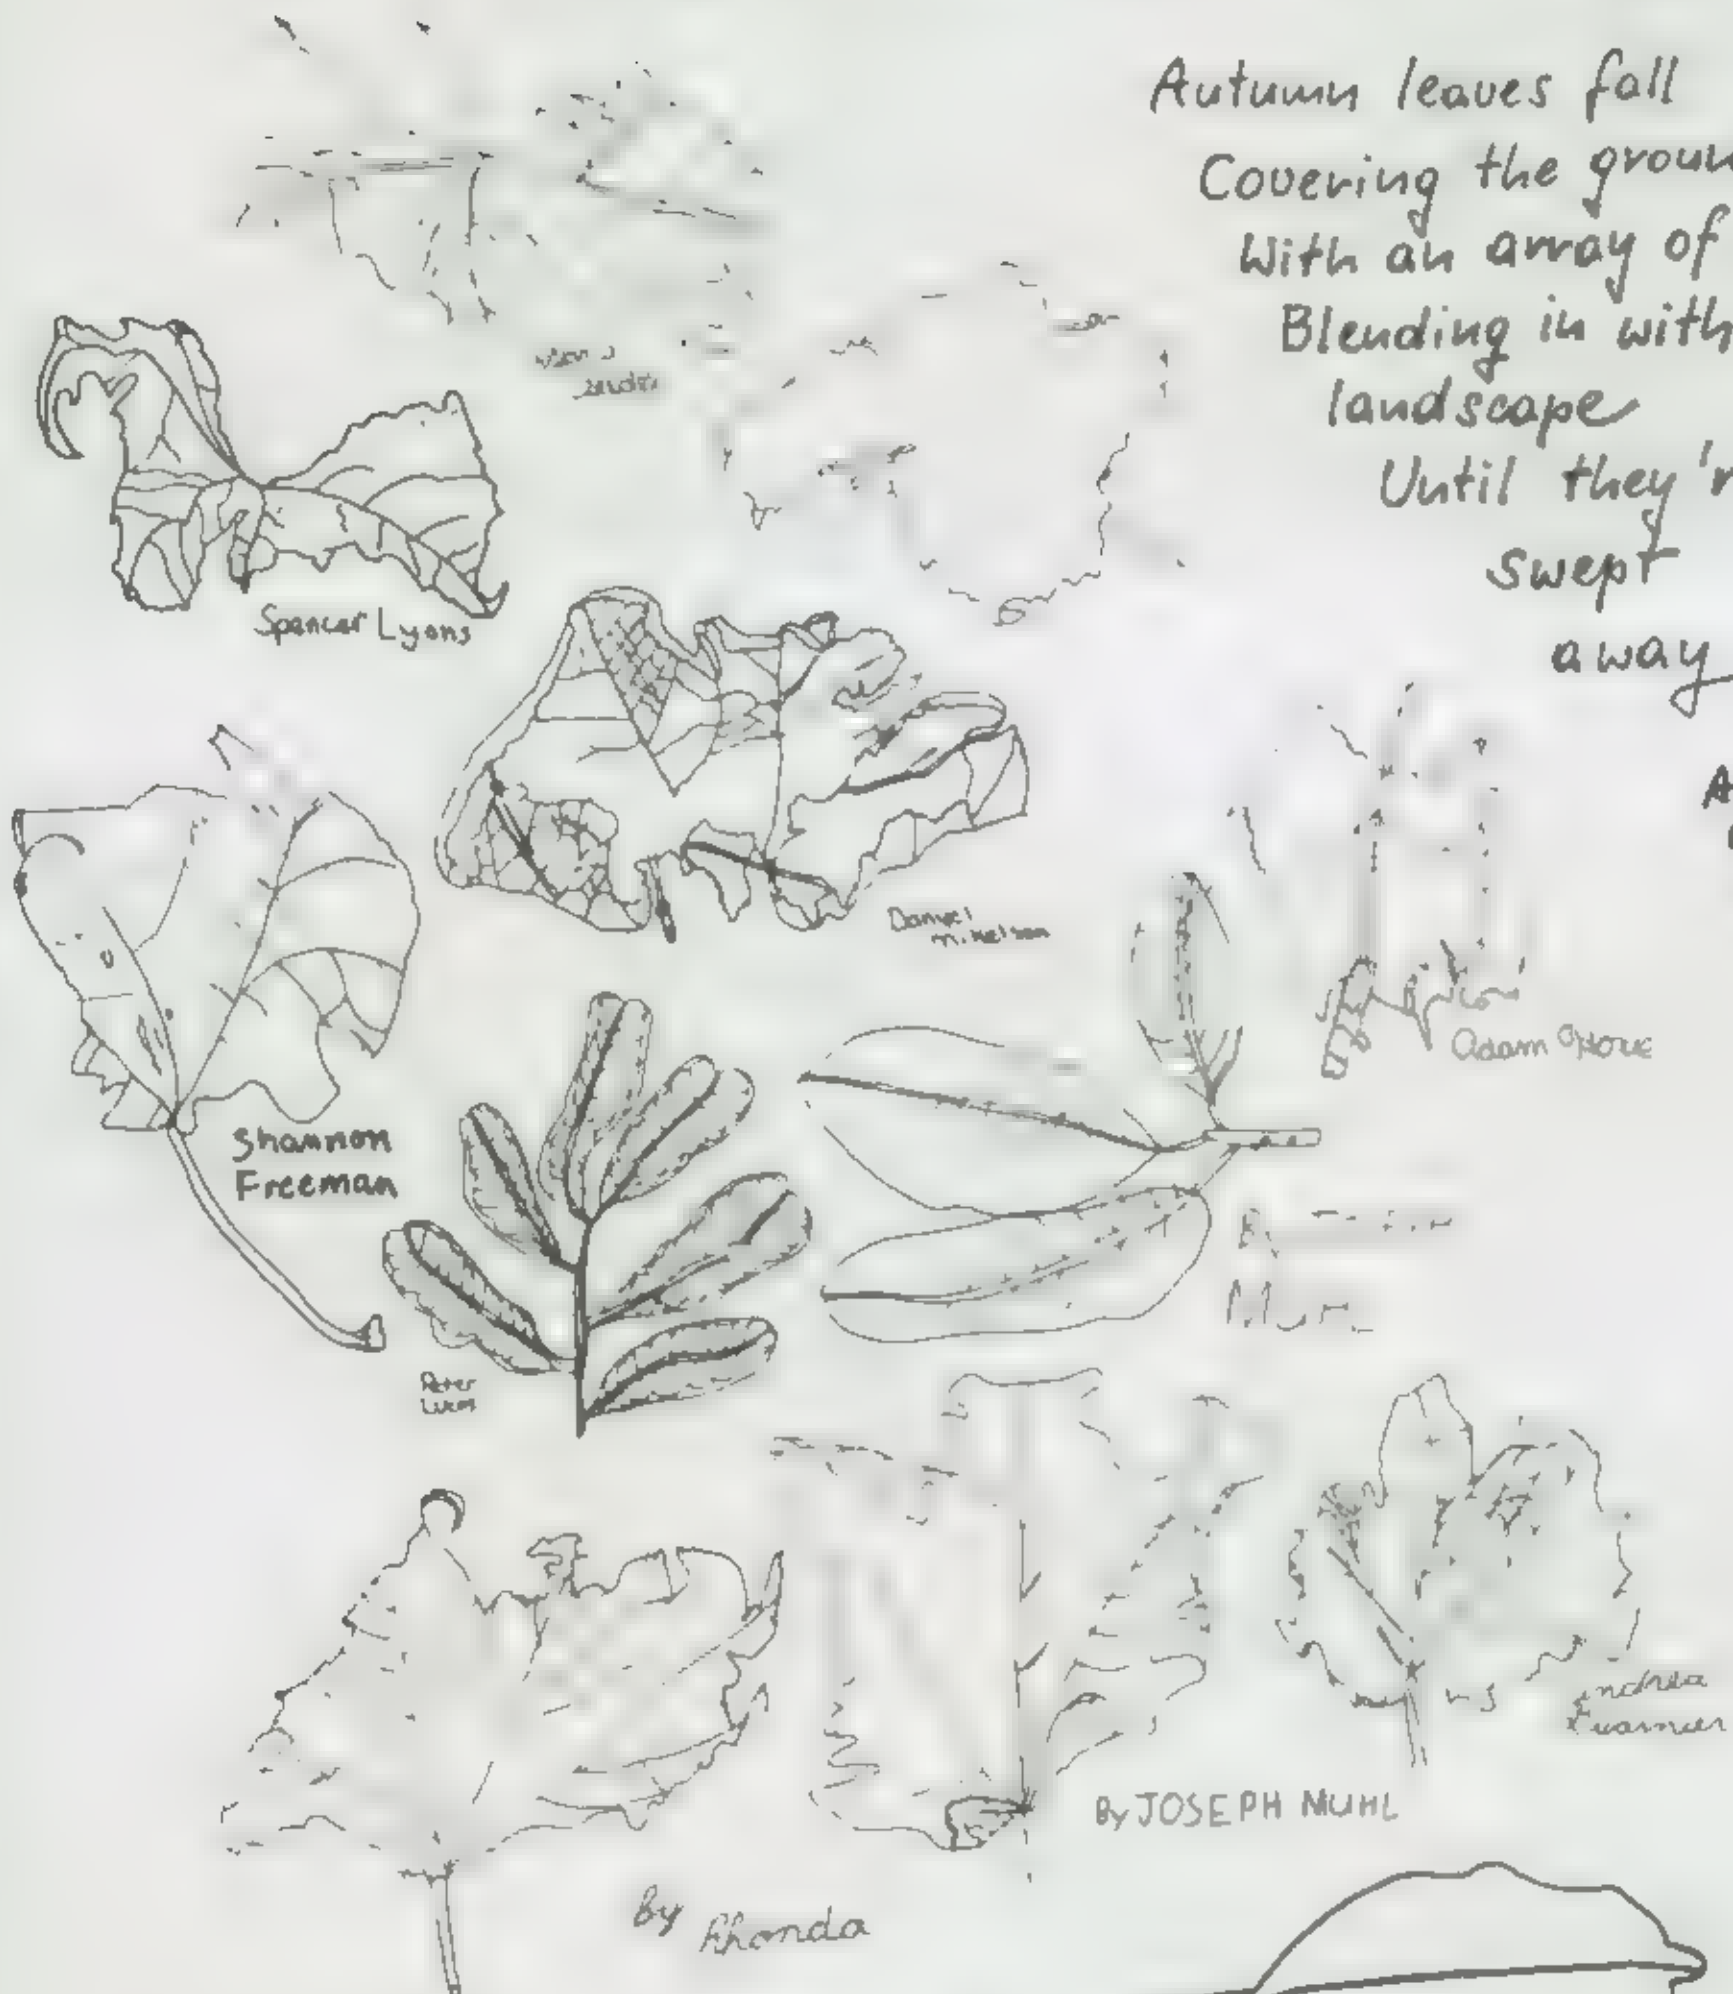 Autumn leaves fall
Covering the groun
With an array of
Blending in with
landscape
Until they'r
swept
away
A
Spencer Lyons
Danyel
Adam
Shannon
Freeman
Peter
By
By JOSEPH MUHL
By Rhonda